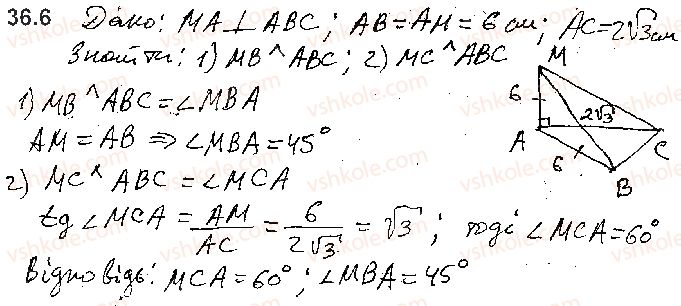 36.6 Дано: MA⊥ABC; AB=AM=6 см; AC=2√3 см
Знайти: 1) MB^ABC; 2) MC^ABC
1) MB^ABC=∠MBA
AM=AB ⇒ ∠MBA=45°
2) MC^ABC=∠MCA
tg∠MCA = AM/AC = 6/2√3 = √3; тоді ∠MCA=60°
Відповідь: MCA=60°; ∠MBA=45°
M
6
2√3
A
C
6
B
vshkole.com